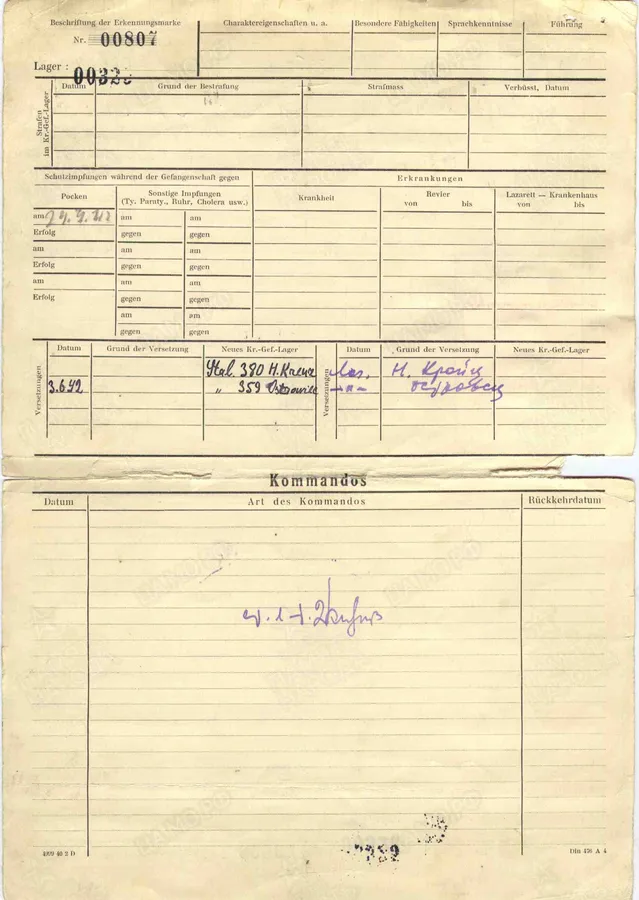 Beschriftung der Erkennungsmarke
Nr. 00807
Lager :
Charaktereigenschaften u. a.
Besondere Fähigkeiten
Sprachkenntnisse
Führung
Strafen im Kr.-Gef.-Lager
Datum
Grund der Bestrafung
Strafmass
Verbüsst, Datum
Schutzimpfungen während der Gefangenschaft gegen
Erkrankungen
Pocken
Sonstige Impfungen
(Ty. Paraty., Ruhr, Cholera usw.)
Krankheit
Revier
von bis
Lazarett — Krankenhaus
von bis
am am am
Erfolg gegen gegen
am am am
Erfolg gegen gegen
am am am
Erfolg gegen gegen
am am
gegen gegen
Versetzungen
Datum
Grund der Versetzung
Neues Kr.-Gef.-Lager
Versetzungen
Datum
Grund der Versetzung
Neues Kr.-Gef.-Lager
Stal. 380 H.
3.6.42 " 359
Kommandos
Datum
Art des Kommandos
Rückkehrdatum
4209 40 2 D
Din 476 A 4